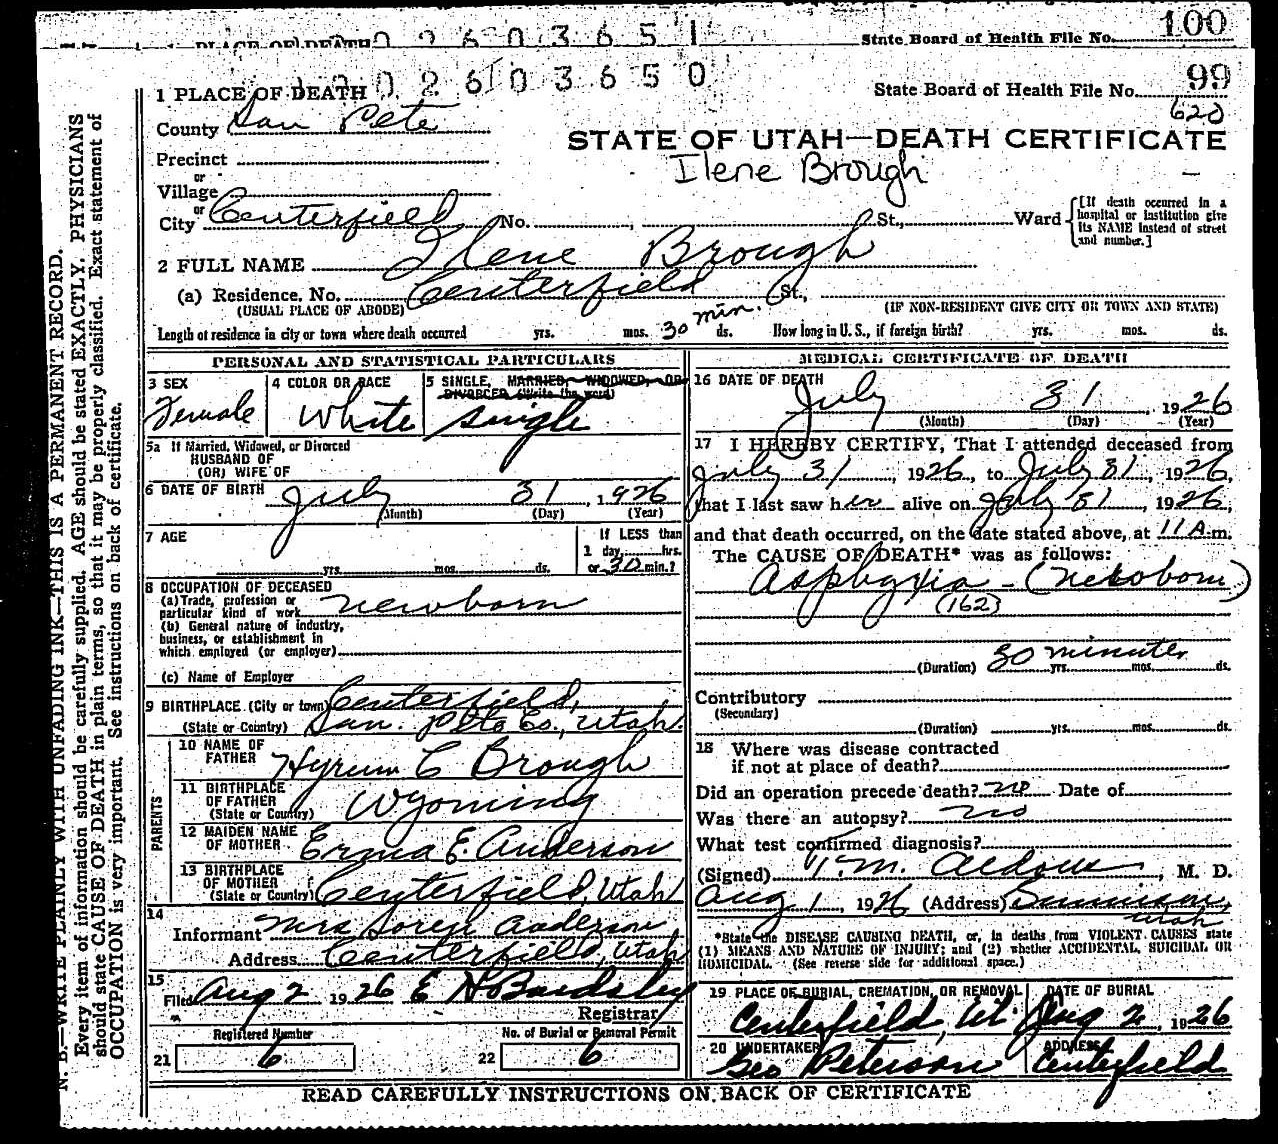 1 PLACE OF DEATH 0 2 6 0 3 6 5 1 State Board of Health File No. 100
1 PLACE OF DEATH 0 2 6 0 3 6 5 0 State Board of Health File No. 99
County San Pete 620
STATE OF UTAH—DEATH CERTIFICATE
Precinct
Ilene Brough
or
Village
or
City Centerfield No. , St., Ward [If death occurred in a hospital or institution give its NAME instead of street and number.]
2 FULL NAME Ilene Brough
(a) Residence, No. Centerfield St.,
(USUAL PLACE OF ABODE) (IF NON-RESIDENT GIVE CITY OR TOWN AND STATE)
Length of residence in city or town where death occurred yrs. mos. 30 min. ds. How long in U. S., if foreign birth? yrs. mos. ds.
PERSONAL AND STATISTICAL PARTICULARS
3 SEX Female
4 COLOR OR RACE White
5 SINGLE, MARRIED, WIDOWED, OR DIVORCED (Write the word) Single
5a If Married, Widowed, or Divorced
HUSBAND OF
(OR) WIFE OF
6 DATE OF BIRTH July 31, 1926
(Month) (Day) (Year)
7 AGE yrs. mos. ds. If LESS than 1 day, hrs. or 30 min.?
8 OCCUPATION OF DECEASED
(a) Trade, profession or particular kind of work newborn
(b) General nature of industry,
business, or establishment in
which employed (or employer)
(c) Name of Employer
9 BIRTHPLACE (City or town) Centerfield,
(State or Country) San Pete Co., Utah.
PARENTS
10 NAME OF FATHER Hyrum C Brough
11 BIRTHPLACE OF FATHER (State or Country) Wyoming
12 MAIDEN NAME OF MOTHER Erma E. Anderson
13 BIRTHPLACE OF MOTHER (State or Country) Centerfield, Utah
14 Informant Mrs Soren Anderson
Address Centerfield, Utah
15 Filed Aug 2 1926 E H Bardsley
Registrar
Registered Number No. of Burial or Removal Permit
21 6 22 6
MEDICAL CERTIFICATE OF DEATH
16 DATE OF DEATH July 31, 1926
(Month) (Day) (Year)
17 I HEREBY CERTIFY, That I attended deceased from
July 31, 1926, to July 31, 1926,
that I last saw her alive on July 31, 1926,
and that death occurred, on the date stated above, at 11 A. m.
The CAUSE OF DEATH* was as follows:
Asphyxia - (newborn)
(162)
(Duration) 30 minutes yrs. mos. ds.
Contributory
(Secondary)
(Duration) yrs. mos. ds.
18 Where was disease contracted
if not at place of death?
Did an operation precede death? no Date of
Was there an autopsy? no
What test confirmed diagnosis?
(Signed) M. , M. D.
Aug 1, 1926 (Address)
Utah
*State the DISEASE CAUSING DEATH, or, in deaths from VIOLENT CAUSES state
(1) MEANS AND NATURE OF INJURY; and (2) whether ACCIDENTAL, SUICIDAL OR
HOMICIDAL. (See reverse side for additional space.)
19 PLACE OF BURIAL, CREMATION, OR REMOVAL DATE OF BURIAL
Centerfield, Ut. Aug 2, 1926
20 UNDERTAKER ADDRESS
Geo Peterson Centerfield
READ CAREFULLY INSTRUCTIONS ON BACK OF CERTIFICATE
N. B.—WRITE PLAINLY WITH UNFADING INK—THIS IS A PERMANENT RECORD.
Every item of information should be carefully supplied. AGE should be stated EXACTLY. PHYSICIANS
should state CAUSE OF DEATH in plain terms, so that it may be properly classified. Exact statement of
OCCUPATION is very important. See instructions on back of certificate.